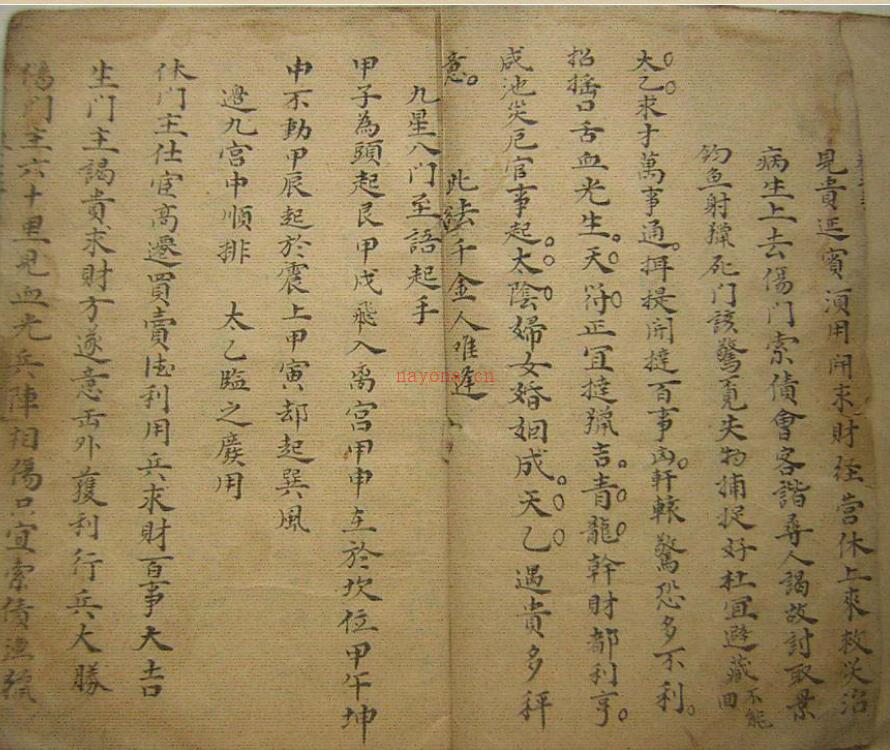 見貴筵賓須用開求財經營休上來救災治
病生上去傷門索債會客諧尋人謁故討取景
釣魚射獵死門該驚覓失物捕捉好杜宜避藏不能回
太乙求才萬事通。揖提開撻百事凶。軒轅驚恐多不利。
招搖口舌血光生。天符正宜撻獵吉。青龍幹財都利亨。
咸池災厄官事起。太陰婦女婚姻成。天乙遇貴多秤
意。 此法千金人唯逢
九星八門至語起手
甲子為頭起艮甲戌飛入离宮甲申在於坎位甲午坤
中不動甲辰起於震上甲寅却起巽風
遶九宮中順排 太乙臨之廢用
休門主仕宦高遷買賣 利用兵求財百事大吉
生門主謁貴求財方遂意 外獲利行兵大勝
傷門主六十里見血光兵陣相傷只宜索債 獵
nayona.cn